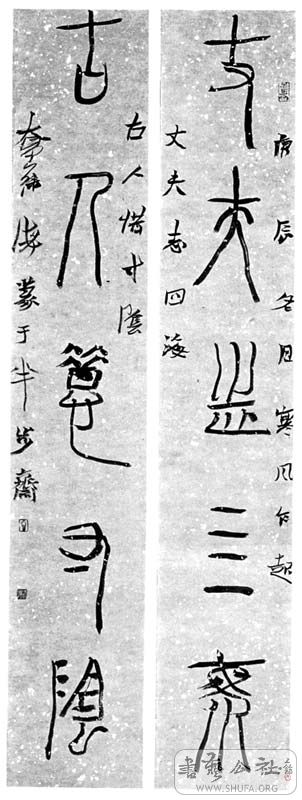 丈夫志亖海
庚辰冬日寒风乍起
丈夫志四海
古人惜寸陰
古人惜寸陰
海篆于半步齋
公社
WWW.SHUFA.ORG